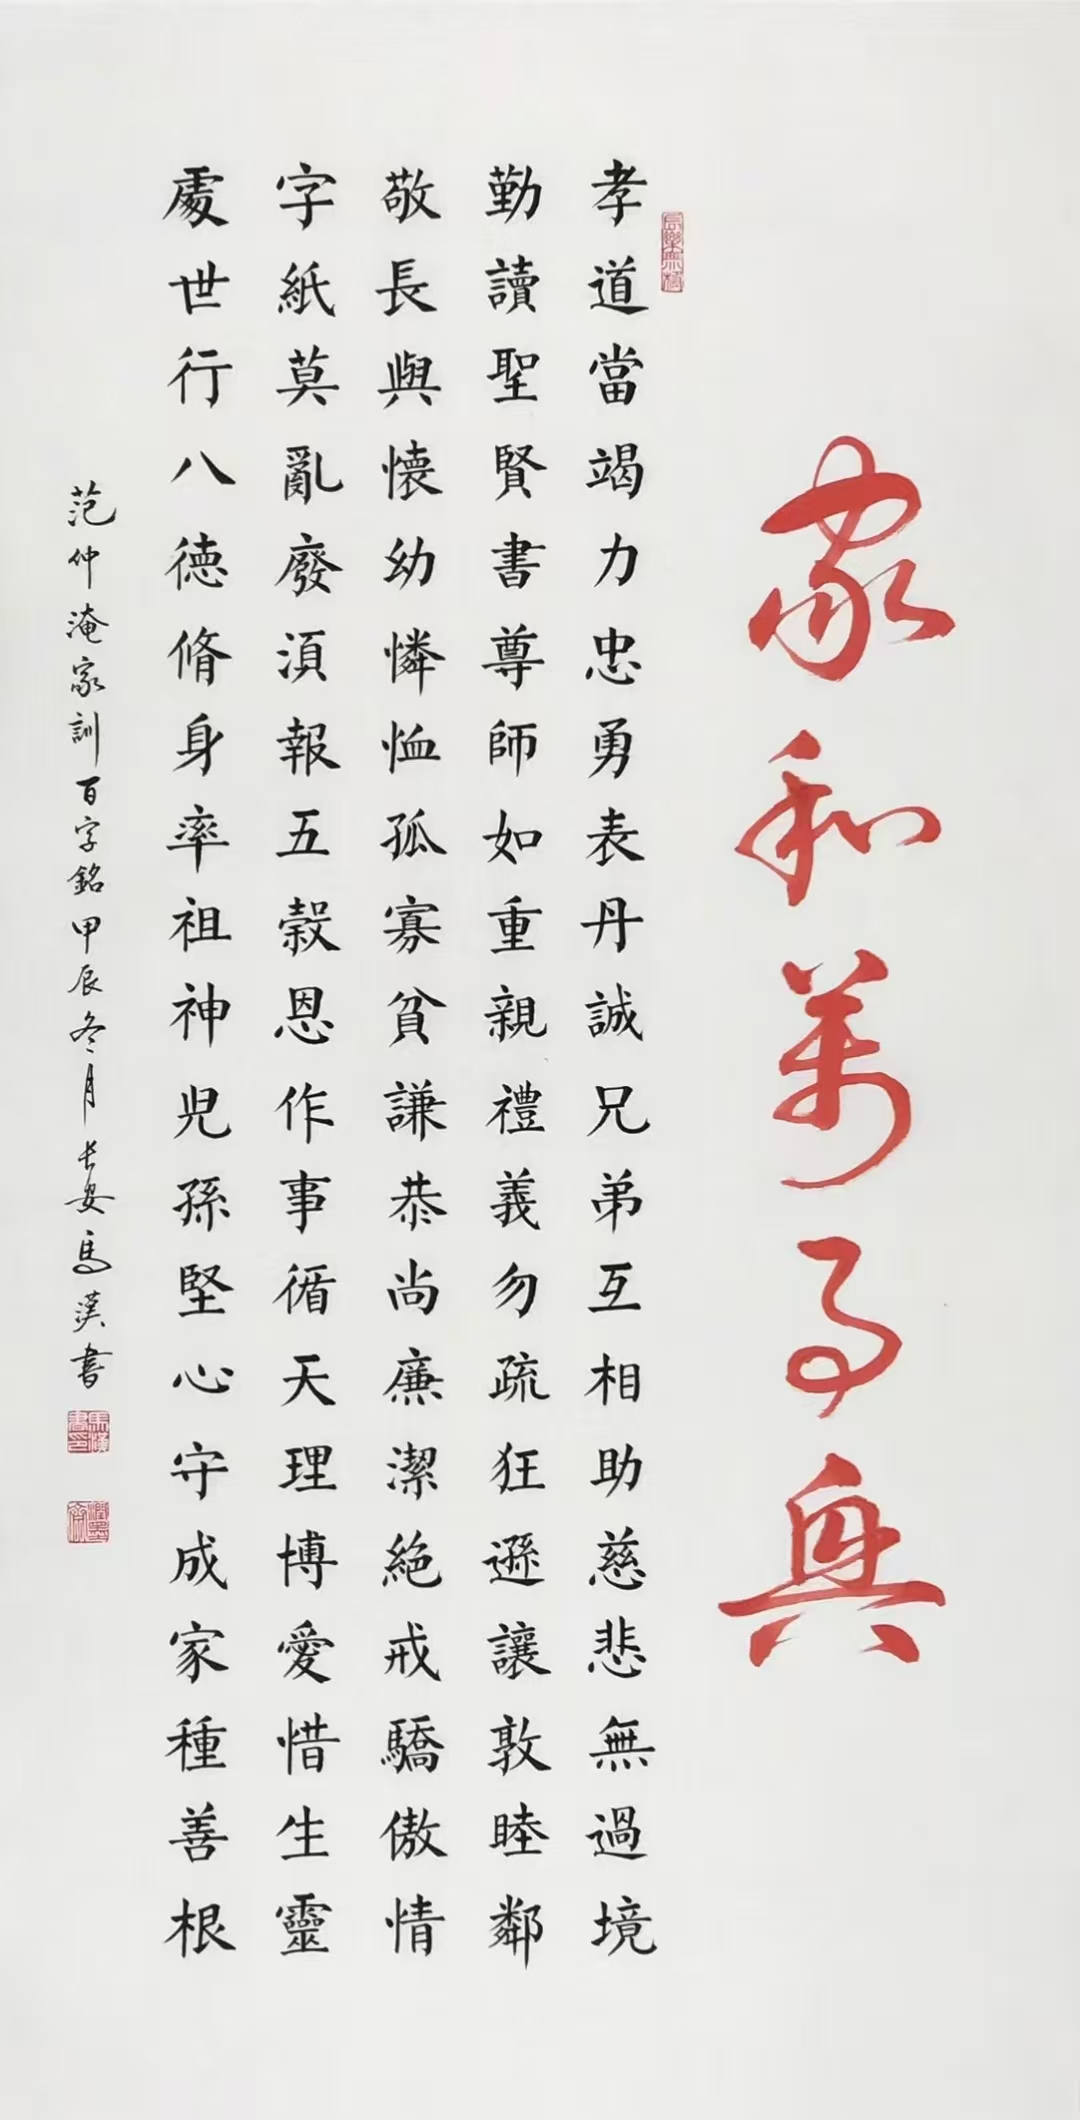 家和萬事興
長樂無極
孝道當竭力忠勇表丹誠兄弟互相助慈悲無過境
勤讀聖賢書尊師如重親禮義勿疏狂遜讓敦睦鄰
敬長與懷幼憐恤孤寡貧謙恭尚廉潔絕戒驕傲情
字紙莫亂廢須報五穀恩作事循天理博愛惜生靈
處世行八德脩身率祖神兒孫堅心守成家種善根
范仲淹家訓百字銘甲辰冬月長安馬漢書
馬漢書印